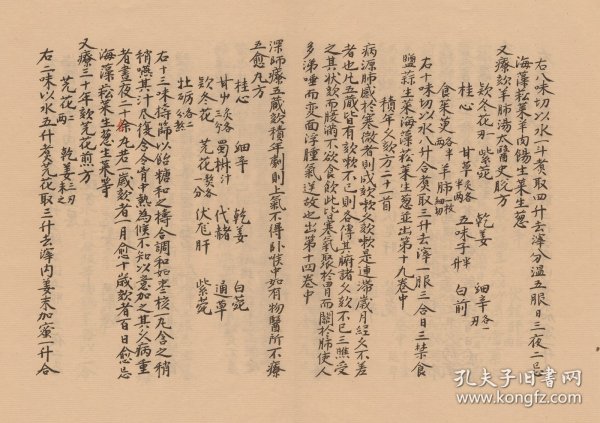 右八味切以水一斗煮取四升去滓分温五服日三夜二忌
海藻菘菜羊肉餳生菜生葱
又療欬羊肺湯太醫史脱方
欬冬花 紫菀 乾姜 細辛各一两
桂心 甘草各半两 五味子半升 白前
食茱萸各半两 羊肺一枚細切
右十味切以水八升合煮取三升去滓一服三合日三禁食
鹽蒜生菜海藻菘菜生葱並出第十九卷中
積年久欬方二十一首
病源肺感於寒微者則成欬嗽久欬嗽是連滯歲月經久不差
者也凡五藏皆有欬嗽不已則各傳其腑諸久欬不已三膲受
之其狀欬而腹满不欲食飲此皆寒氣聚於胃而關於肺使人
多涕唾而变面浮腫氣逆故也出第十四卷中
深師療五歲欬積年劇則上氣不得卧喉中如有物醫所不療
五愈丸方
桂心 細辛 乾姜 白菀
甘草炙各三分 蜀椒汁 代赭 通草
欵冬花 芫花熬各一分 伏尨肝 紫菀
牡蛎各二分熬
右十三味擣篩以飴糖和之擣合調和如枣核一丸含之稍
稍嚥其汁尽復含令胷中熱為候不知以意加之其久病重
者晝夜二十余丸若一歲欬者一月愈十歲欬者百日愈忌
海藻菘菜生葱生菜等
又療三十年欬芫花煎方
芫花二两 乾姜三两末之
右二味以水五升煮芫花取三升去滓内姜末加蜜一升合
孔夫子旧书网
www.kongfz.com